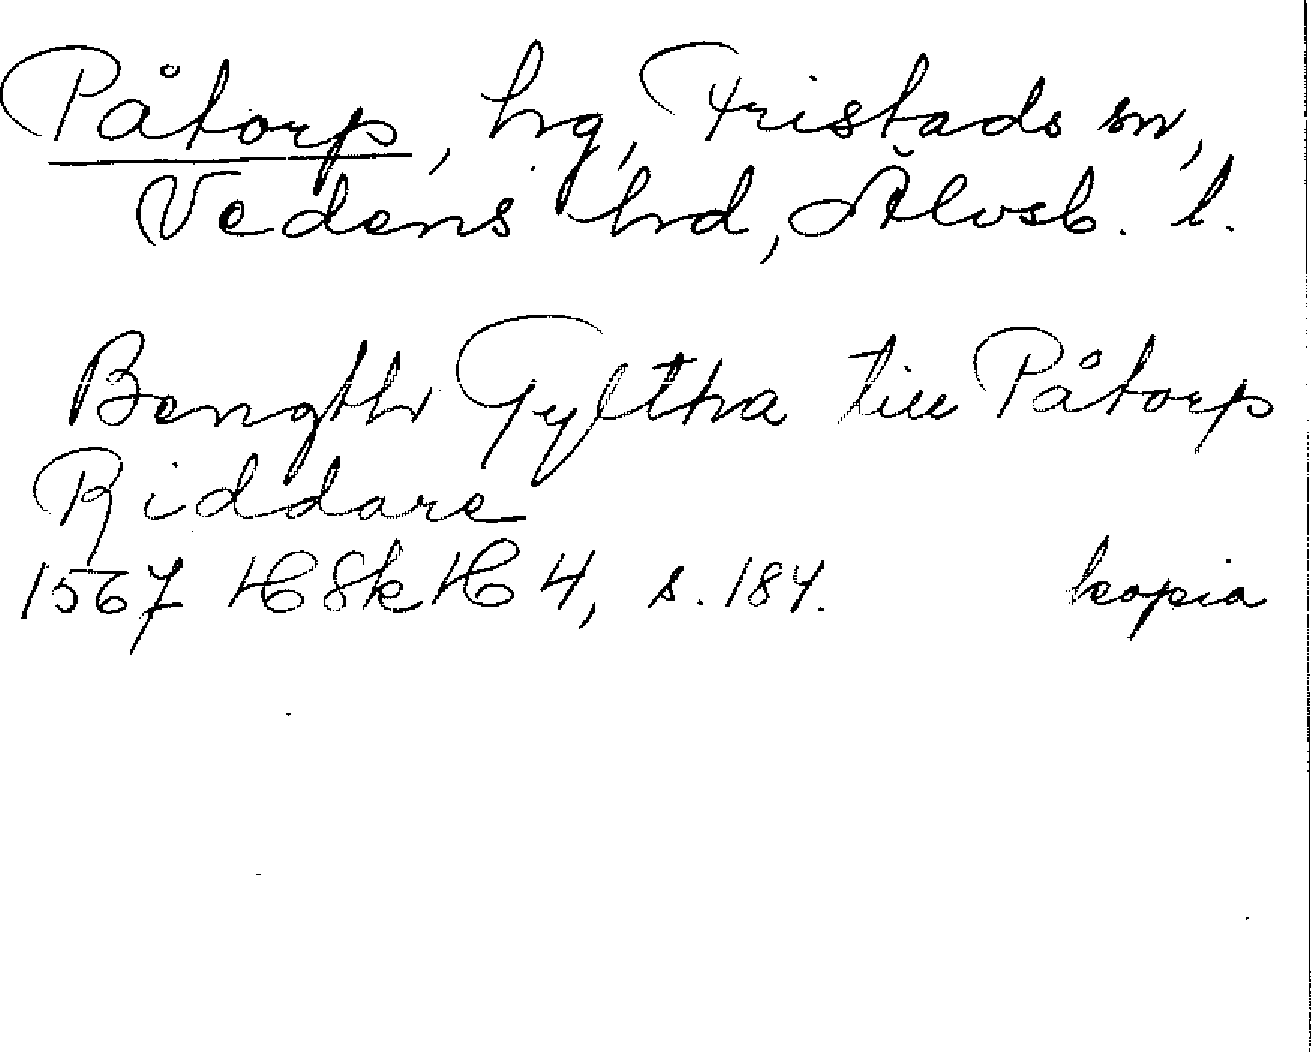 Påtorp, hg, Fristads sn,
Vedens hd, Älvsb. l.
Bength Gyltha till Påtorp
Riddare
1567 HSkH 4, s. 184. kopia